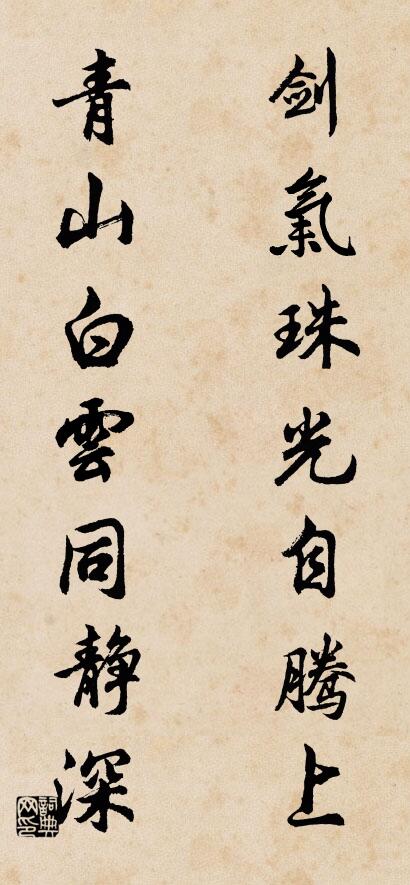 剑氣珠光自腾上
青山白雲同静深
詞典网印